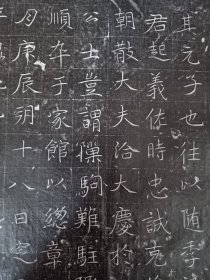 其元子也往以随季
君起義佐時忠誠克
朝散大夫洽大慶於
公士豈謂隟駒難駐
順卒于家館以總章
月庚辰朔十八日